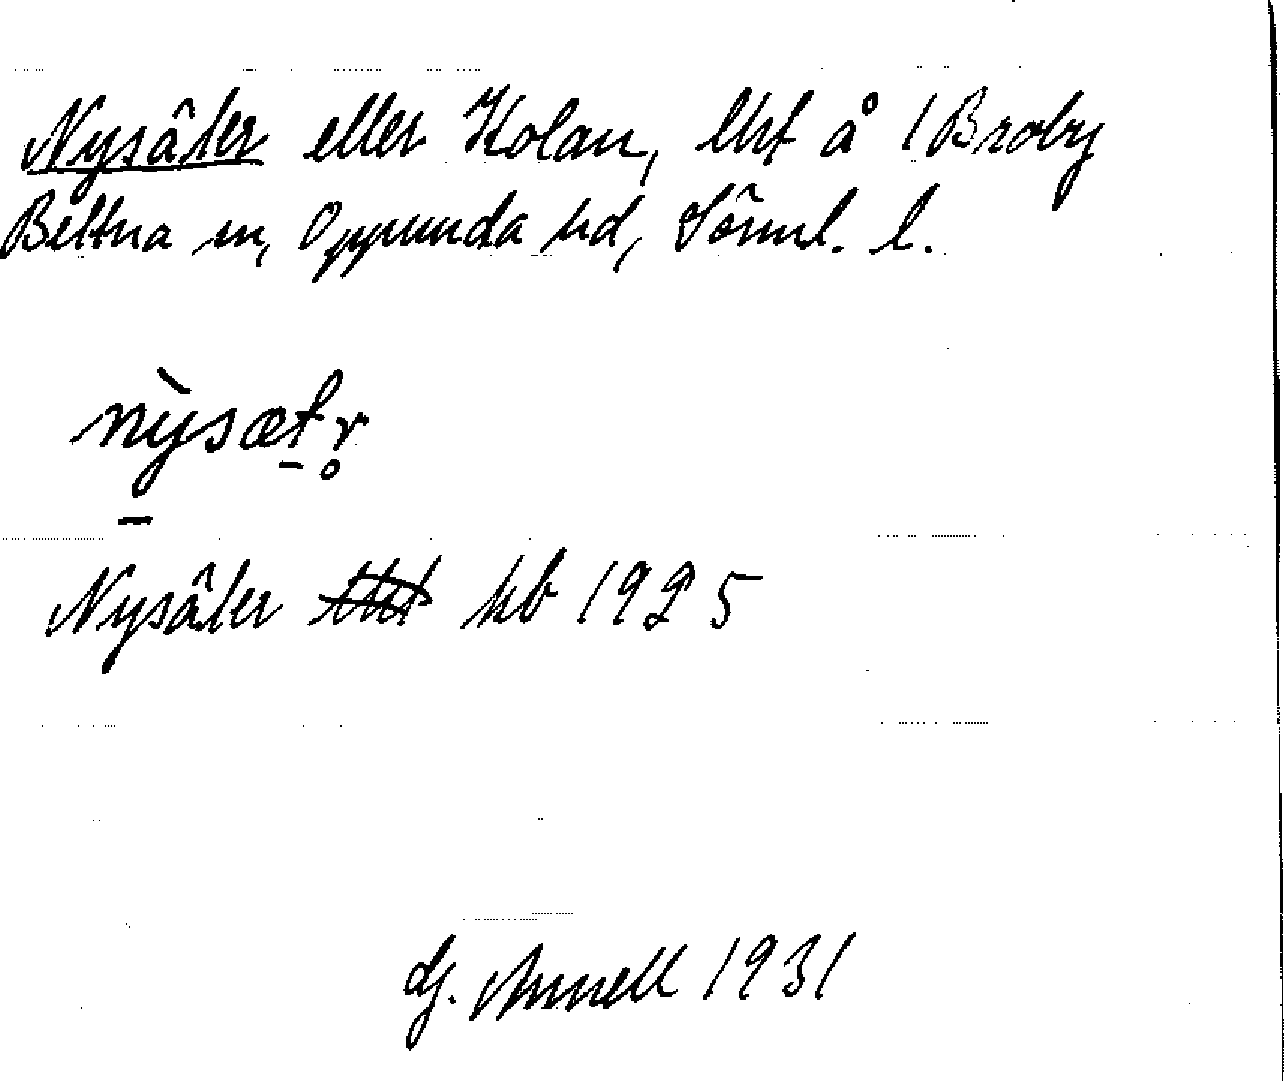 Nysäter eller Kolan, lht å 1 Broby
Bettna sn, Oppunda hd, Sörml. l.
nỳsætr̥
Nysäter kb 1925
G. Annell 1931